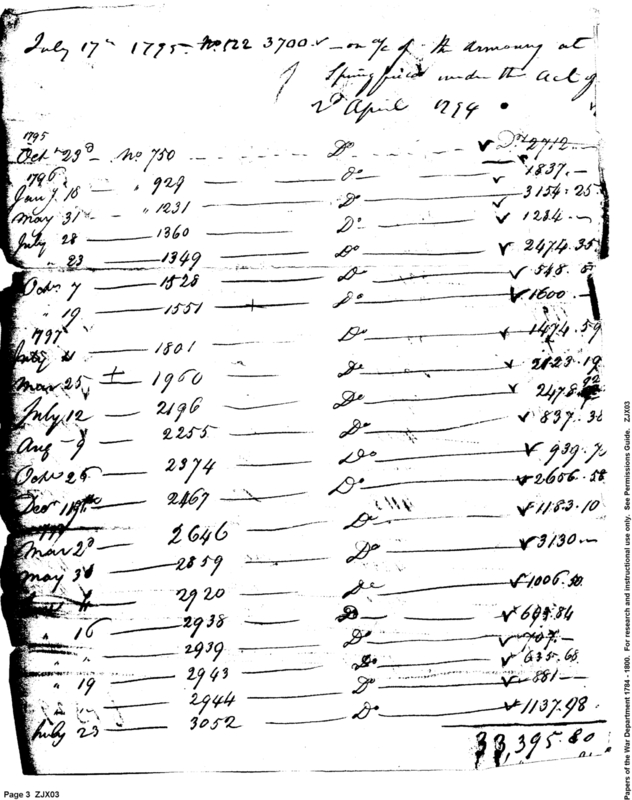 July 17th 1795 No. 122 3700 — on a/c of the armoury at
Springfield under the Act of
2d April 1794
1795
Octr 23d No 750 Do 2712
1796
Jany 18 " 929 Do 1837.—
May 31 " 1231 Do 3154.25
July 28 1360 Do 1284.—
" 23 1349 Do 2474.35
Octr 7 1528 Do 548.
" 19 1551 Do 1600.—
1797
1801 Do 1474.59
Mar 25 1960 Do 2123.19
July 12 2196 Do 2478.92
Aug 9 2255 Do 837.
Octr 26 2374 Do 939.
Decr 2467 Do 2656.58
2646 Do 1183.10
Mar 2d
May 2859 Do 3130—
2920 Do 1006.50
" 16 2938 Do 84
" " 2939 Do
" 19 2943 Do 635.68
2944 Do 881—
July 23 3052 Do 1137.98
33,395.80
Page 3 ZJX03
Papers of the War Department 1784 - 1800. For research and instructional use only. See Permissions Guide. ZJX03